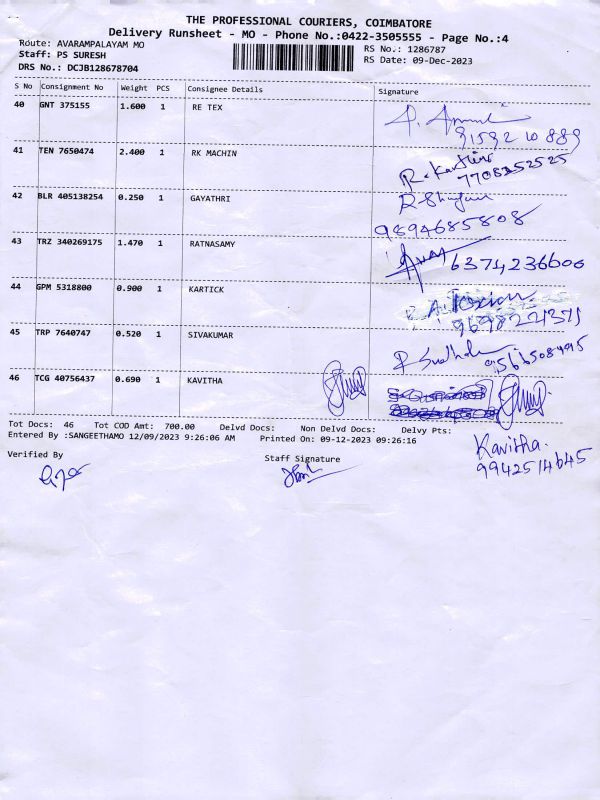 THE PROFESSIONAL COURIERS, COIMBATORE
Delivery Runsheet - MO - Phone No.:0422-3505555 - Page No.:4
Route: AVARAMPALAYAM MO RS No.: 1286787
Staff: PS SURESH RS Date: 09-Dec-2023
DRS No.: DCJB128678704
S No Consignment No Weight PCS Consignee Details Signature
40 GNT 375155 1.600 1 RE TEX
91592 10 889
41 TEN 7650474 2.400 1 RK MACHIN R. Karthi
7708352525
42 BLR 405138254 0.250 1 GAYATHRI
9894685808
43 TRZ 340269175 1.470 1 RATNASAMY 6374236600
44 GPM 5318800 0.900 1 KARTICK
9698221371
45 TRP 7640747 0.520 1 SIVAKUMAR
46 TCG 40756437 0.690 1 KAVITHA
Tot Docs: 46 Tot COD Amt: 700.00 Delvd Docs: Non Delvd Docs: Delvy Pts:
Entered By :SANGEETHAMO 12/09/2023 9:26:06 AM Printed On: 09-12-2023 09:26:16
Kavitha.
9942514645
Verified By Staff Signature